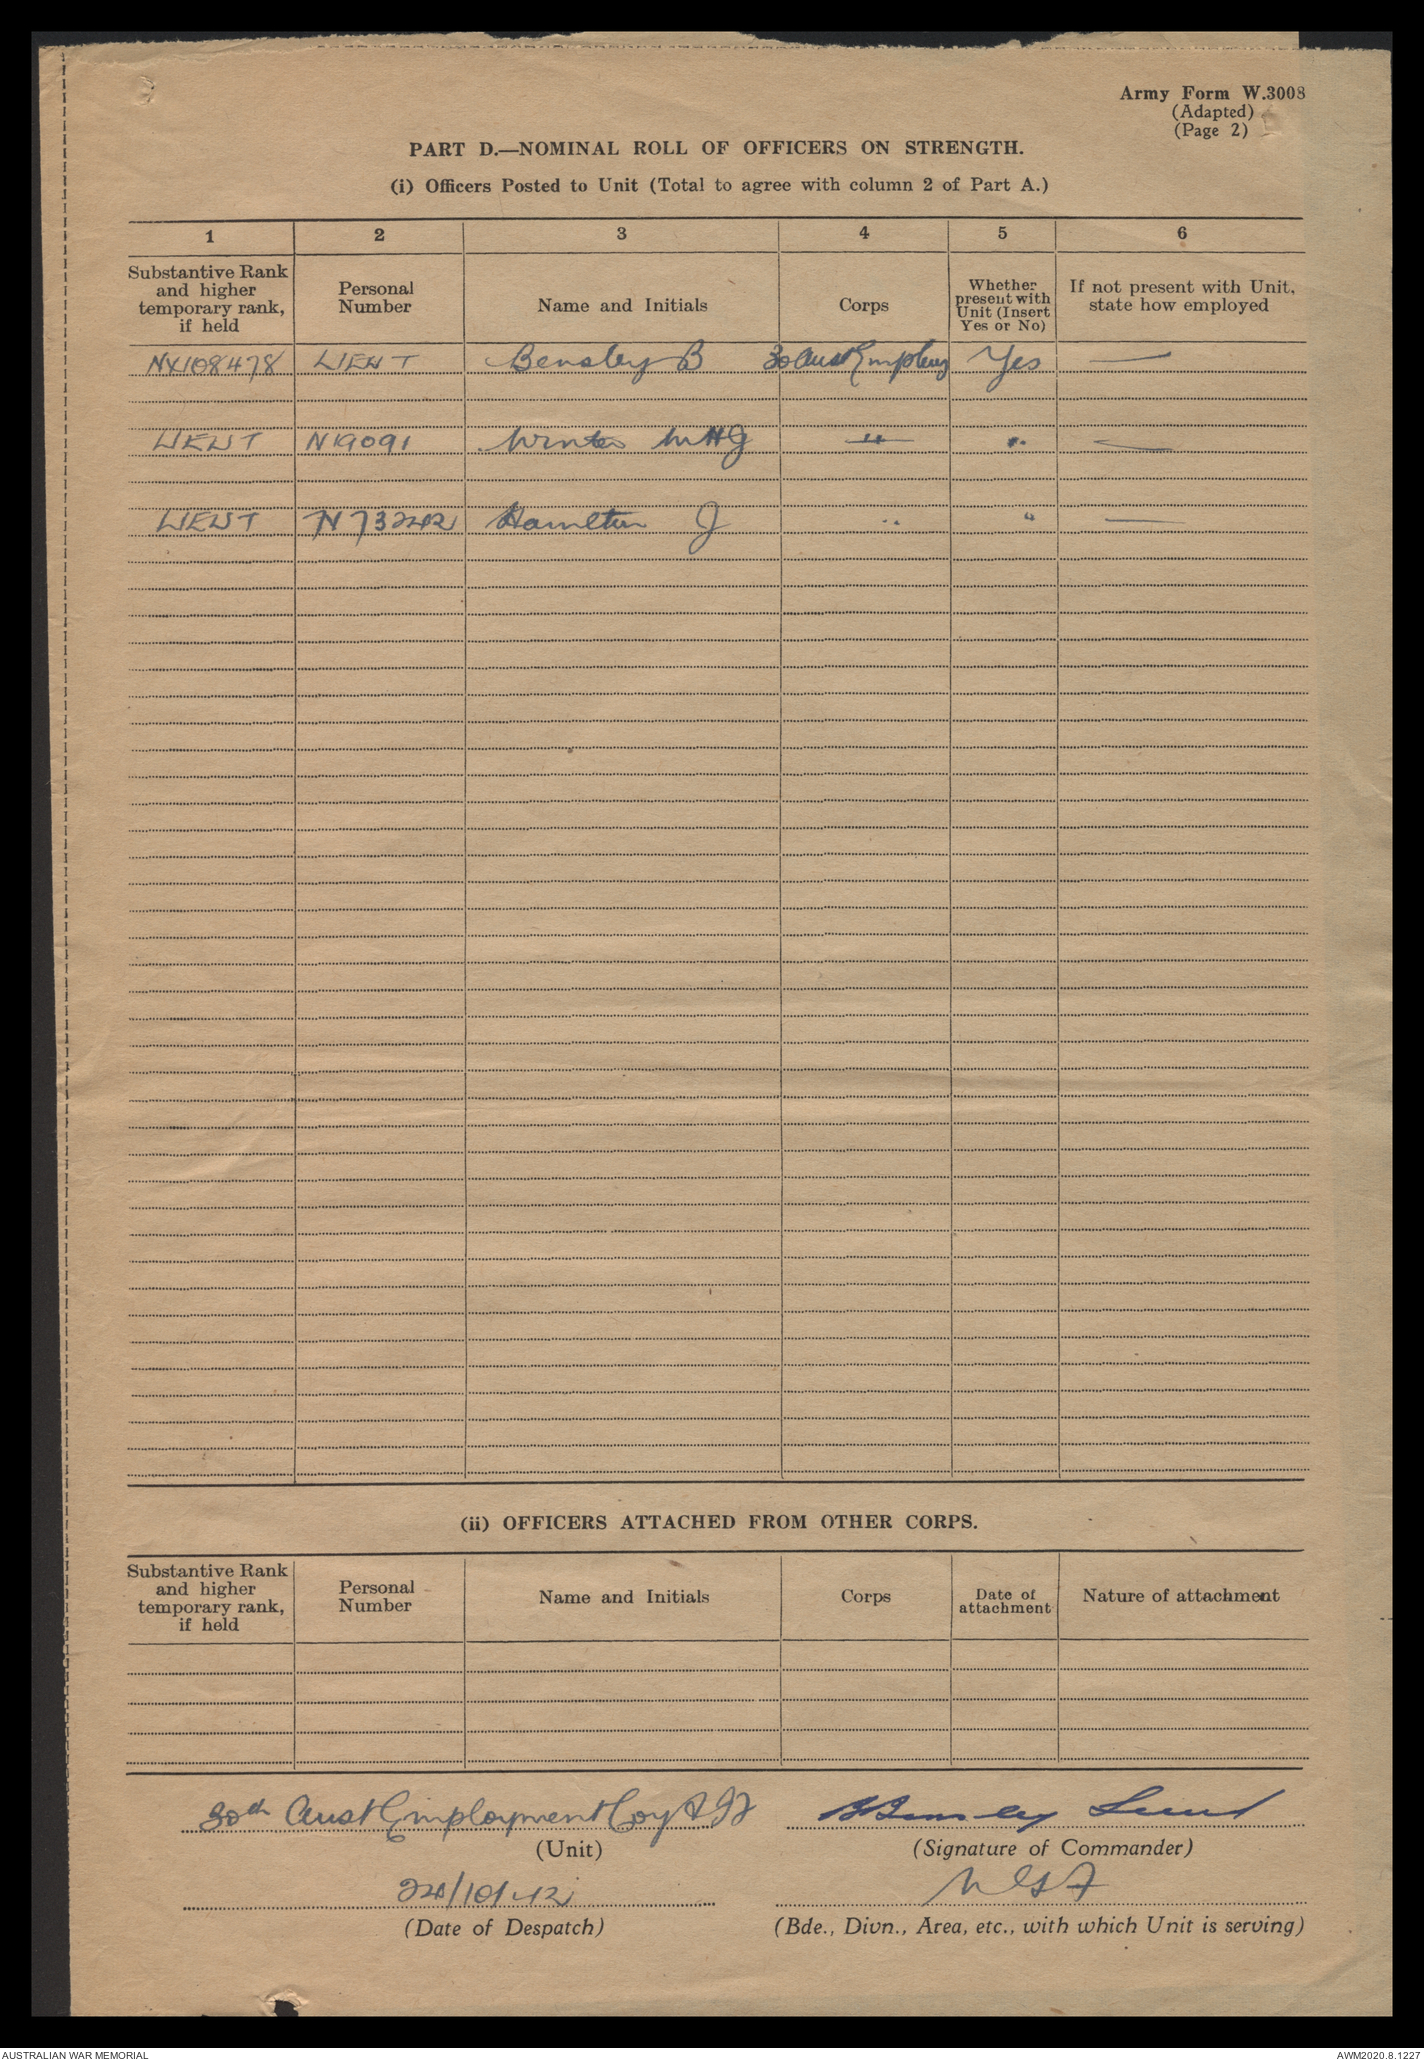 Army Form W.3008
(Adapted)
(Page 2)
PART D.—NOMINAL ROLL OF OFFICERS ON STRENGTH.
(i) Officers Posted to Unit (Total to agree with column 2 of Part A.)
1 2 3 4 5 6
Substantive Rank and higher temporary rank, if held
Personal Number
Name and Initials
Corps
Whether present with Unit (Insert Yes or No)
If not present with Unit, state how employed
NX108478 LIEUT Bensley B 30 Aust Emp Coy Yes —
LIEUT N19091 Winter W H J " " —
LIEUT N73242 Hamilton J " " —
(ii) OFFICERS ATTACHED FROM OTHER CORPS.
Substantive Rank and higher temporary rank, if held
Personal Number
Name and Initials
Corps
Date of attachment
Nature of attachment
30th Aust Employment Coy AIF
B Bensley Lieut
(Unit)
(Signature of Commander)
24/10/42
NGF
(Date of Despatch)
(Bde., Divn., Area, etc., with which Unit is serving)
AUSTRALIAN WAR MEMORIAL
AWM2020.8.1227